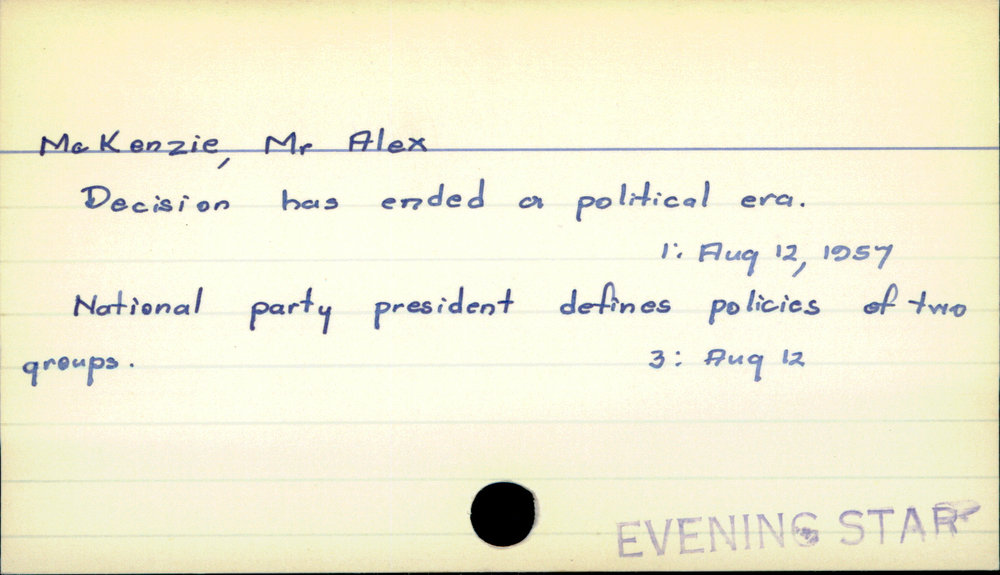 McKenzie, Mr Alex
Decision has ended a political era.
1: Aug 12, 1957
National party president defines policies of two
groups.
3: Aug 12
EVENING STAR